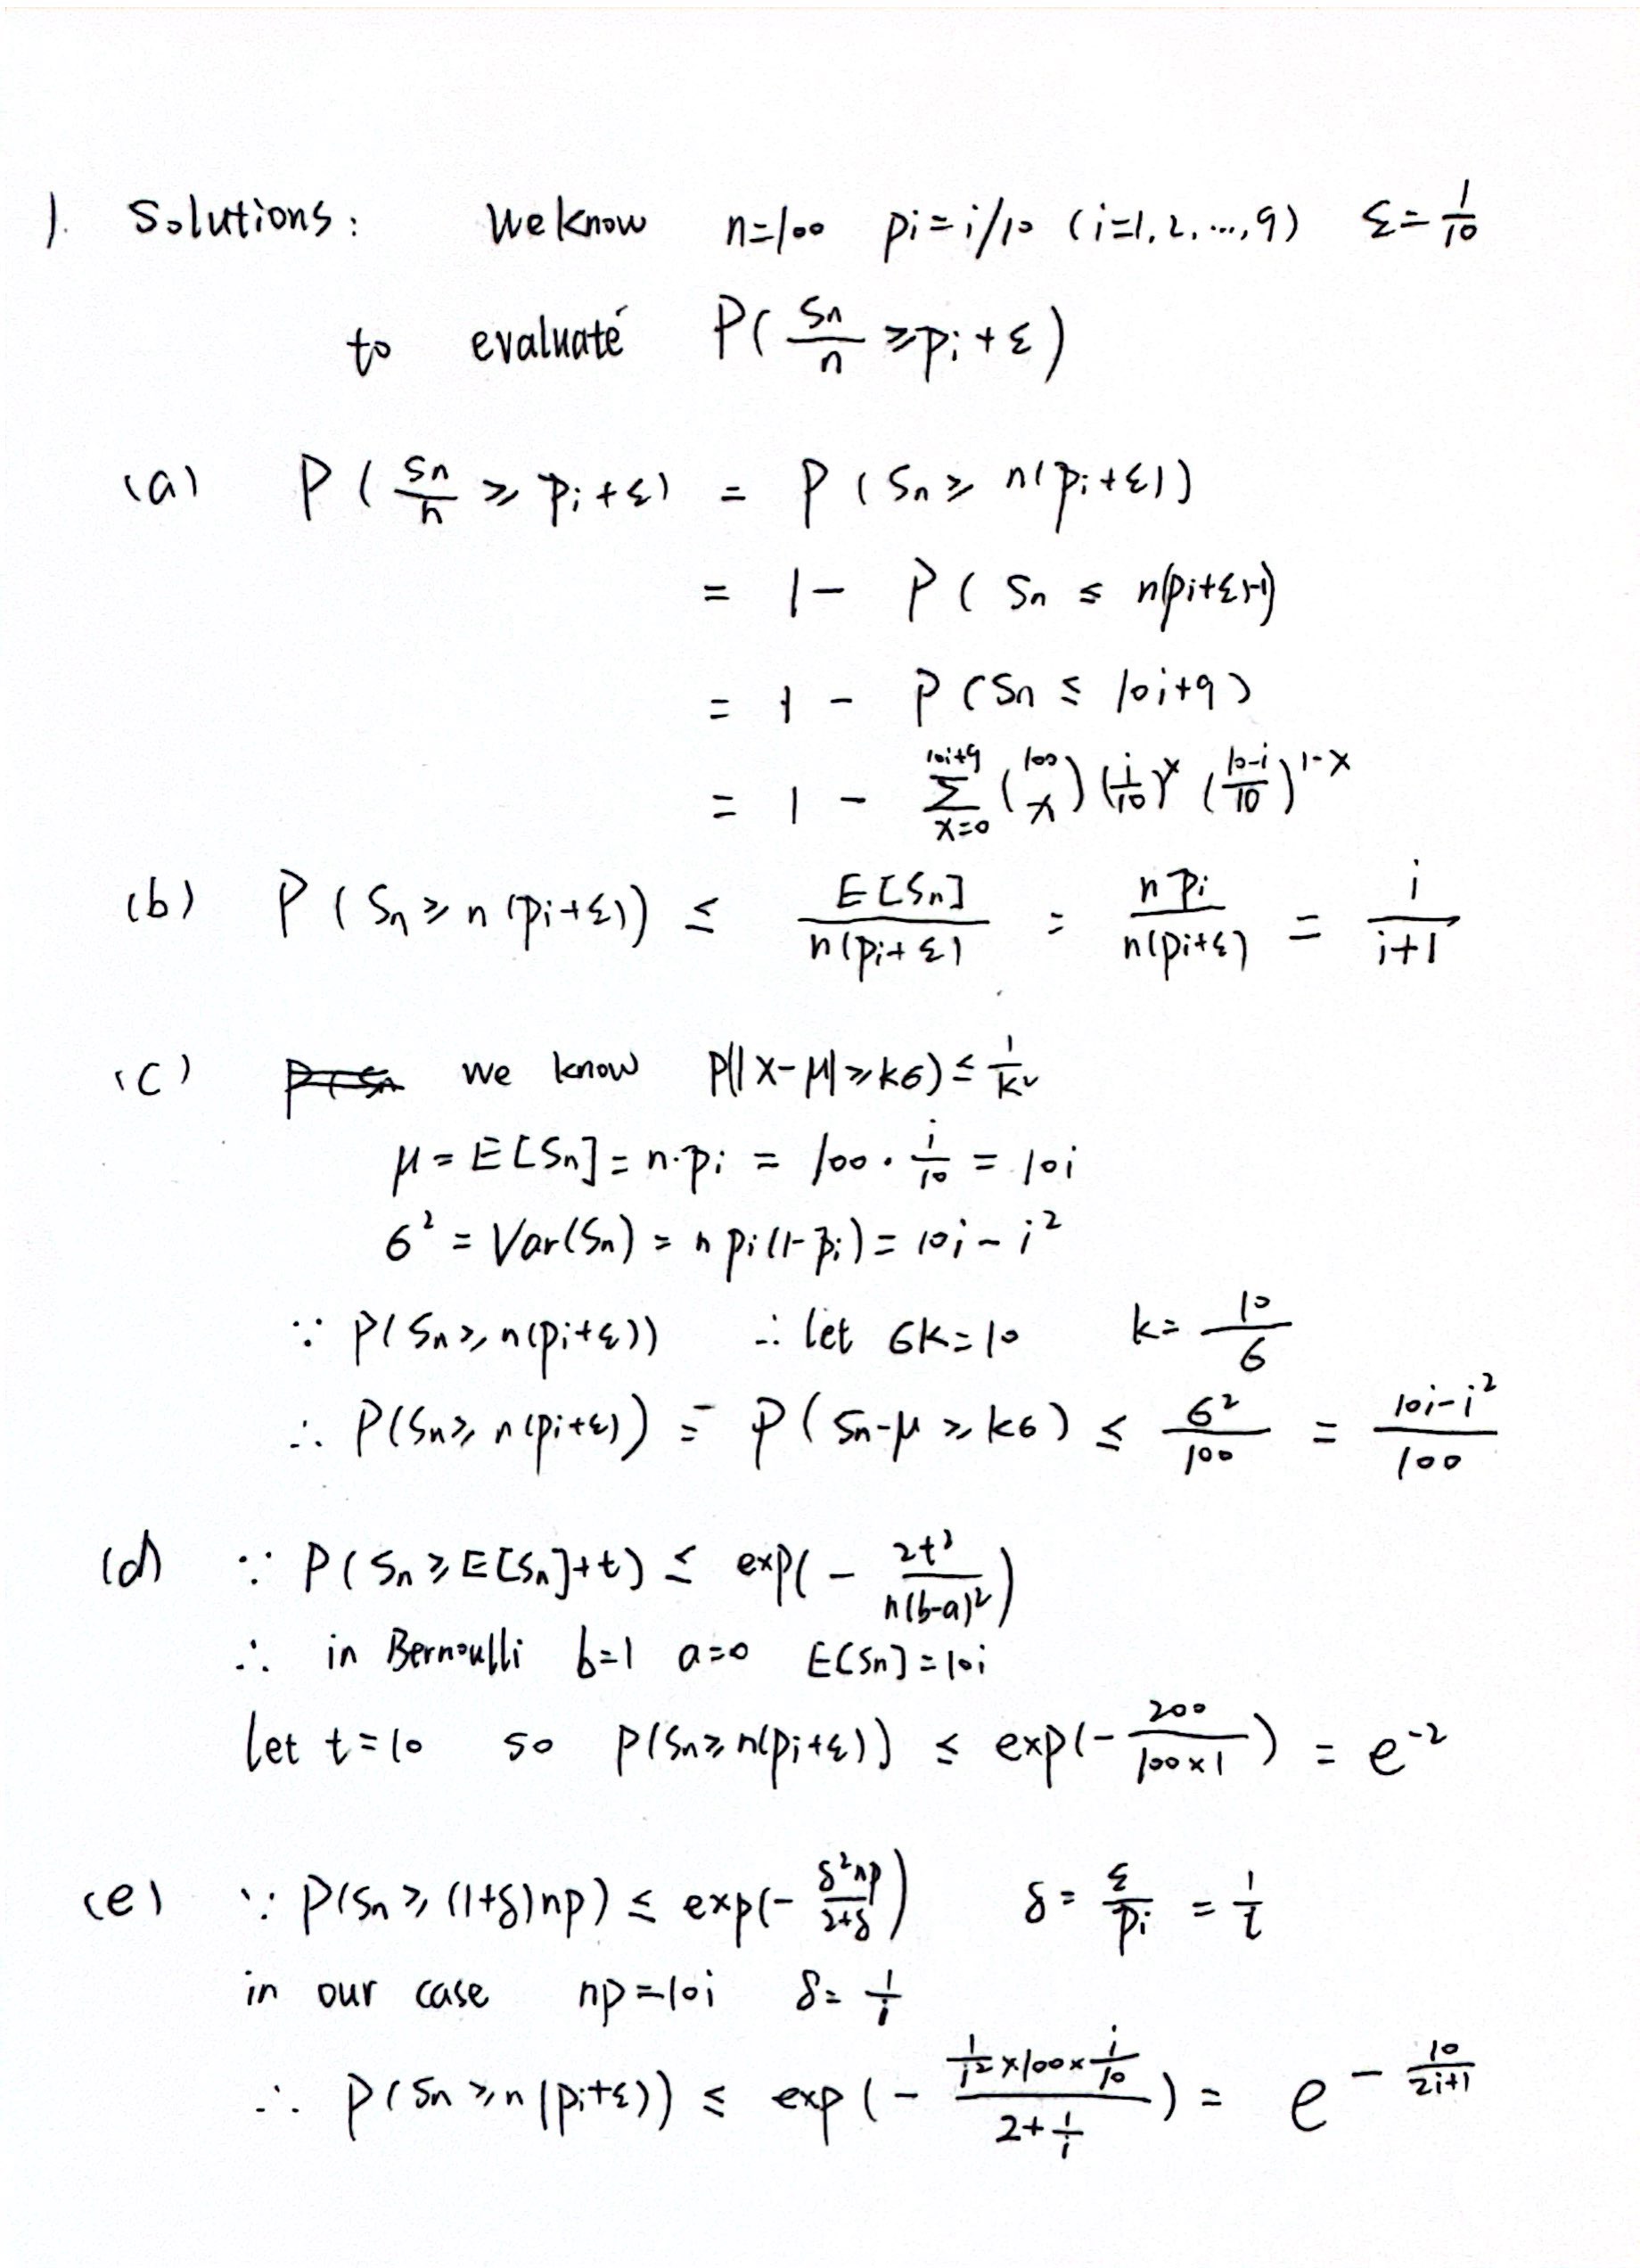 1. Solutions: We know n=100 pi=i/10 (i=1,2,...,9) ε=1/10
to evaluate P(Sn/n ≥pi+ε)
(a) P(Sn/n ≥ pi+ε) = P(Sn≥ n(pi+ε))
= 1- P(Sn ≤ n(pi+ε)-1)
= 1 - P(Sn ≤ 10i+9)
= 1 - ∑_{x=0}^{10i+9} (100 x) (i/10)^x ((10-i)/10)^{1-x}
(b) P(Sn≥n(pi+ε)) ≤ E[Sn]/n(pi+ε) = npi/n(pi+ε) = i/(i+1)
(c) we know P(|X-μ|≥kσ)≤1/k²
μ=E[Sn]=n·pi = 100·i/10 = 10i
σ²=Var(Sn)=npi(1-pi)=10i-i²
∵ P(Sn≥n(pi+ε)) ∴ let σk=10 k=10/σ
∴ P(Sn≥n(pi+ε)) = P(Sn-μ≥kσ) ≤ σ²/100 = (10i-i²)/100
(d) ∵ P(Sn≥E[Sn]+t) ≤ exp(-2t²/n(b-a)²)
∴ in Bernoulli b=1 a=0 E[Sn]=10i
let t=10 so P(Sn≥n(pi+ε)) ≤ exp(-200/100×1) = e^{-2}
(e) ∵ P(Sn≥(1+δ)np) ≤ exp(-δ²np/(2+δ)) δ=ε/pi=1/i
in our case np=10i δ=1/i
∴ P(Sn≥n(pi+ε)) ≤ exp(-(1/i²×100×i/10)/(2+1/i)) = e^{-10/(2i+1)}